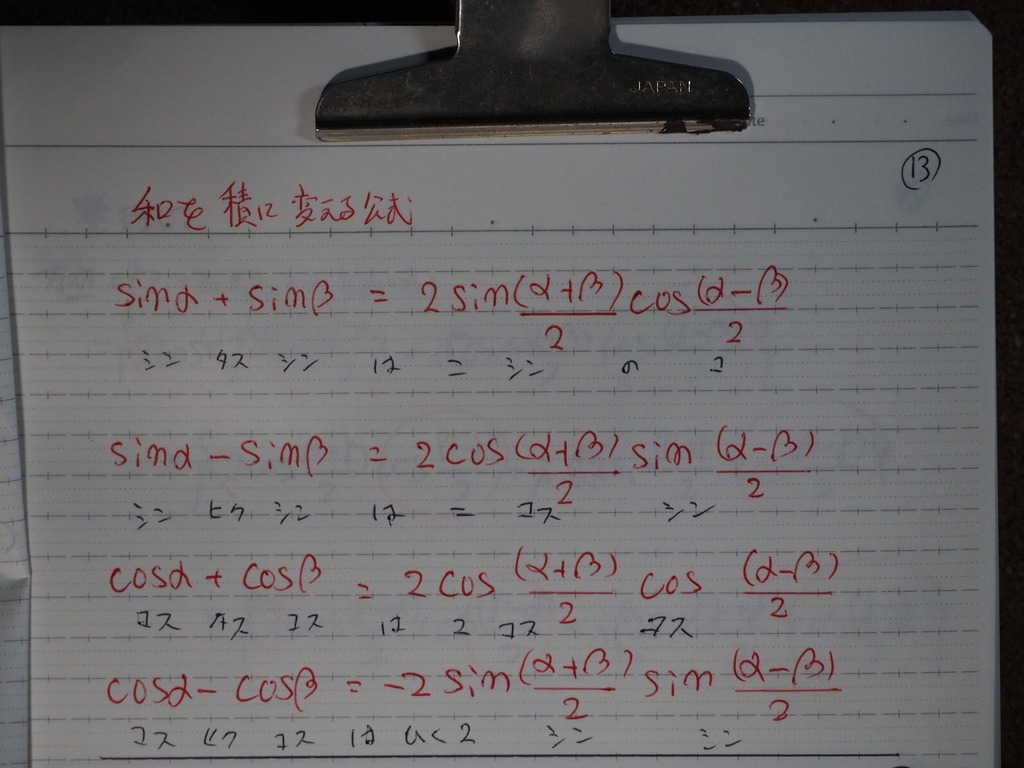 JAPAN
te
⑬
和を積に変える公式
sinα + sinβ = 2 sin (α+β)/2 cos (α-β)/2
シン タス シン は ニ シン の コ
sinα - sinβ = 2 cos (α+β)/2 sin (α-β)/2
シン ヒク シン は ニ コス シン
cosα + cosβ = 2 cos (α+β)/2 cos (α-β)/2
コス タス コス は 2 コス コス
cosα - cosβ = -2 sin (α+β)/2 sin (α-β)/2
コス ヒク コス は ひく 2 シン シン